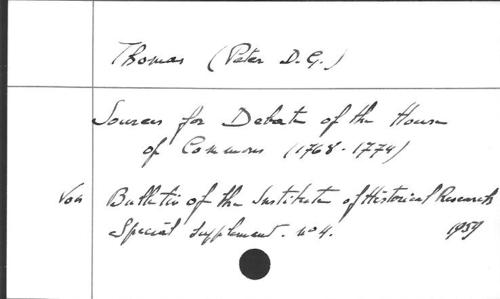 Thomas (Peter D.G.)
Sources for Debate of the House
of Commons (1768-1774)
Voir Bulletin of the Institute of Historical Research
Special Supplement. no 4. 1959